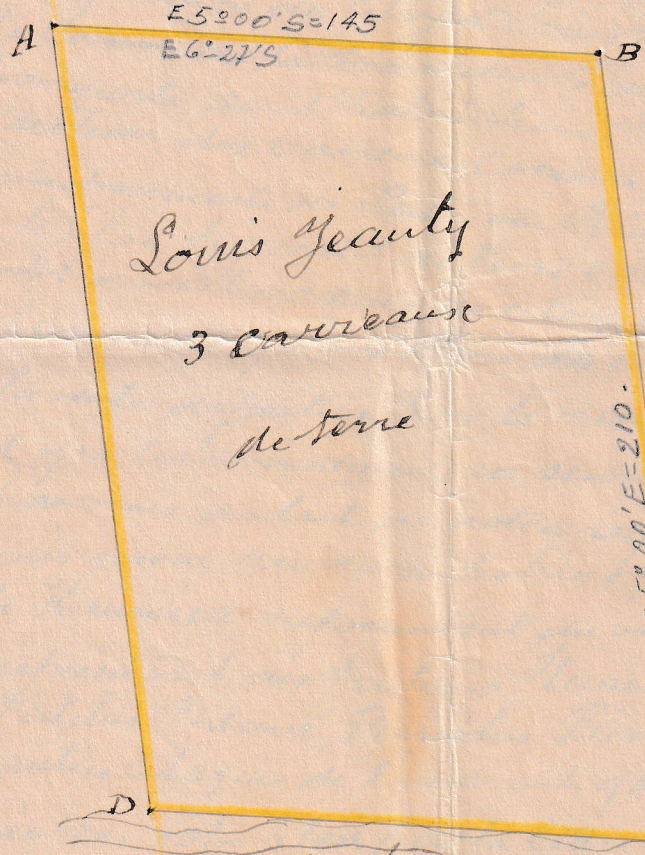 E5º00'S=145
A
E6º-27'S
B
Louis Jeanty
3 carreaux
de terre
5º00'E=210.
D